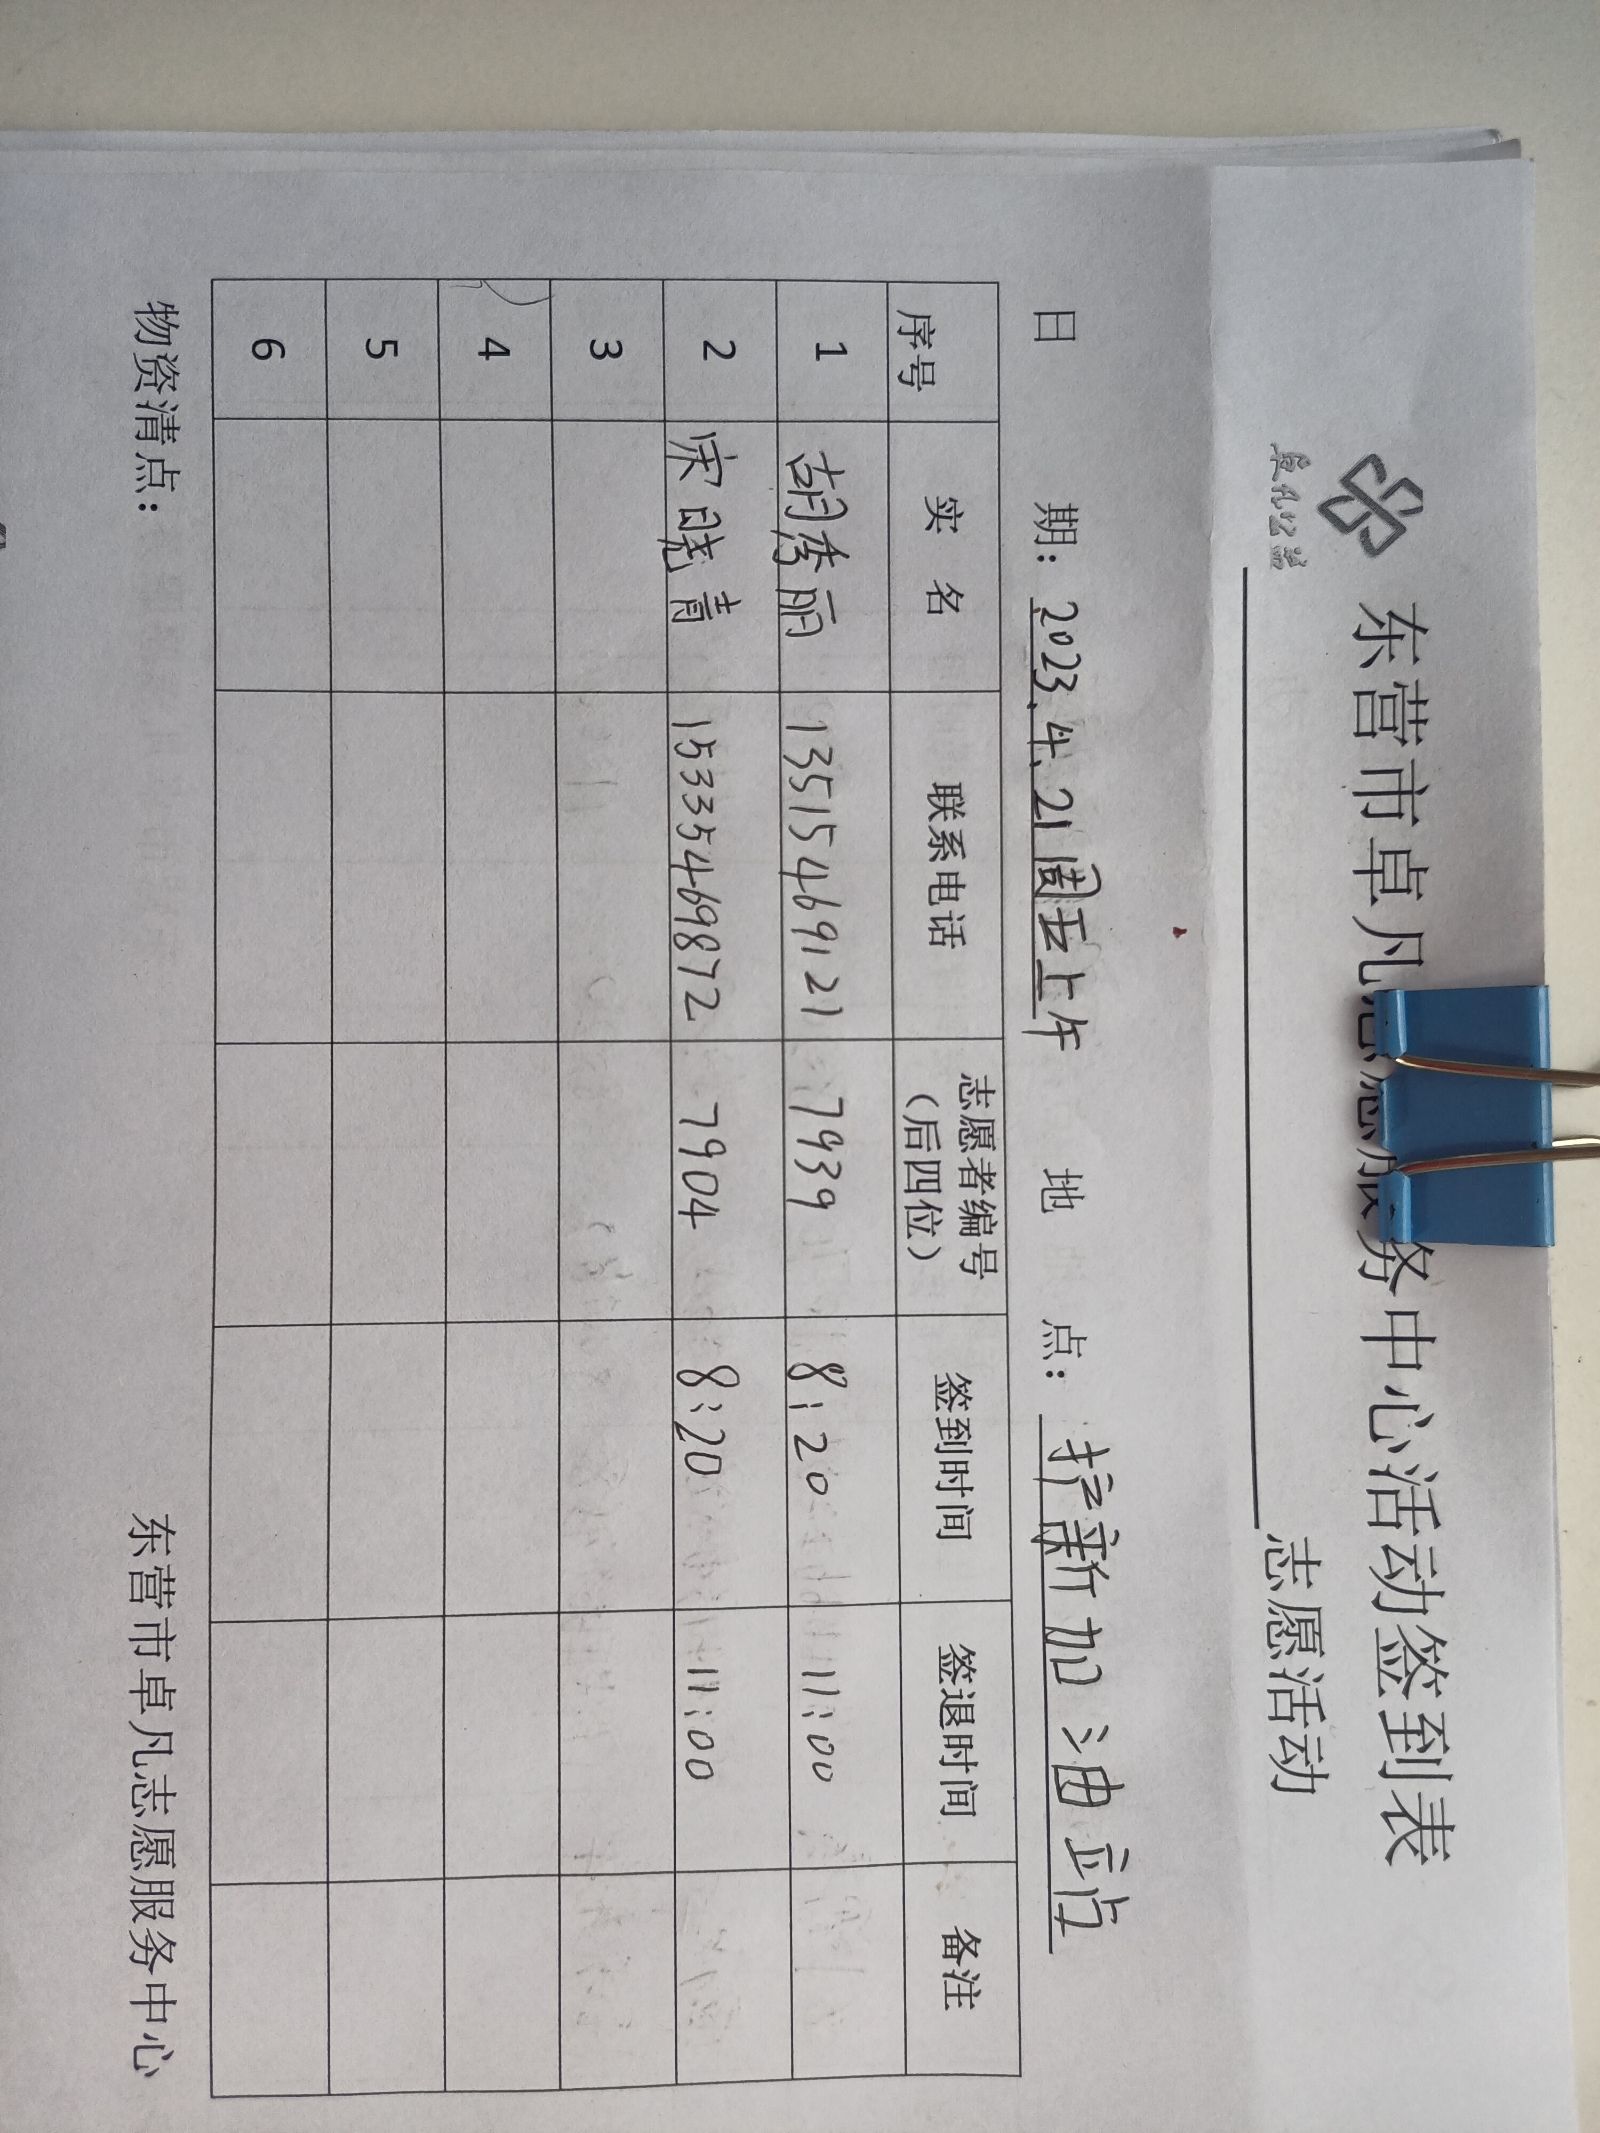 东营市卓凡志愿服务中心活动签到表
卓凡公益
志愿活动
日 期：2023.4.21周五上午 地 点：新加油站
序号 实 名 联系电话 志愿者编号（后四位） 签到时间 签退时间 备注
1 胡秀丽 13515469121 7939 8:20 11:00
2 宋晓青 15335469872 7904 8:20 11:00
3
4
5
6
物资清点：
东营市卓凡志愿服务中心